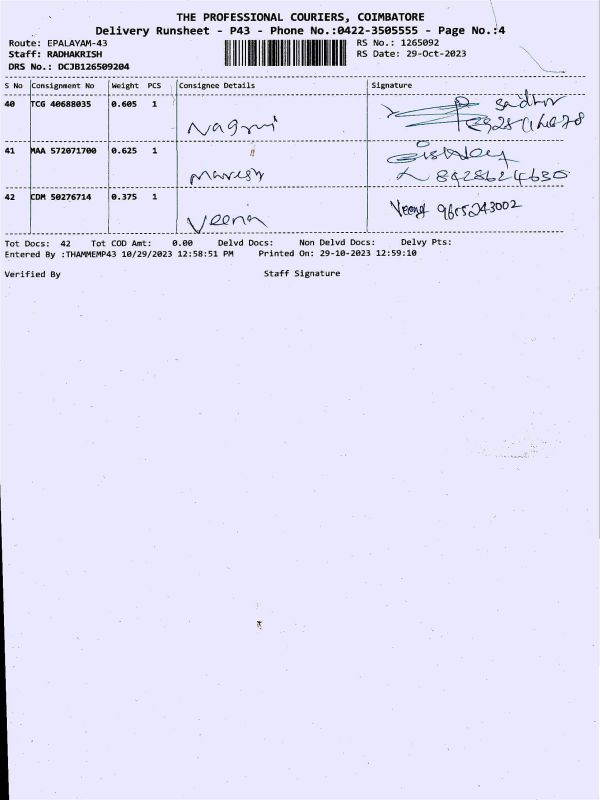 THE PROFESSIONAL COURIERS, COIMBATORE
Delivery Runsheet - P43 - Phone No.:0422-3505555 - Page No.:4
Route: EPALAYAM-43 RS No.: 1265092
Staff: RADHAKRISH RS Date: 29-Oct-2023
DRS No.: DCJB126509204
S No Consignment No Weight PCS Consignee Details Signature
40 TCG 40688035 0.605 1
Nagmi
41 MAA 572071700 0.625 1
Maresh 8428624630
42 CDM 50276714 0.375 1 Veena 9655243002
Veena
Tot Docs: 42 Tot COD Amt: 0.00 Delvd Docs: Non Delvd Docs: Delvy Pts:
Entered By :THAMMEMP43 10/29/2023 12:58:51 PM Printed On: 29-10-2023 12:59:10
Verified By Staff Signature